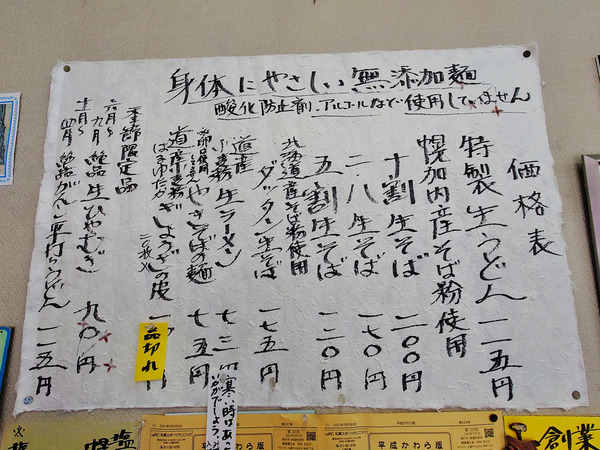 身体にやさしい無添加麺
酸化防止剤、アルコールなど使用していません
価格表
特製生うどん 一一五円
幌加内産そば粉使用
十割生そば 二〇〇円
二八生そば 一七〇円
五割生そば 一二〇円
北海道産そば粉使用
ダッタン生そば 一七五円
道産小麦生ラーメン 七三円
やきそばの麺 七五円
道産小麦
はるゆたか
ぎょうざの皮
二〇枚入
品切れ
季節限定品
六月〜九月 絶品生ひやむぎ 九〇円
十一月〜四月 絶品がんこ平打ちうどん 一一五円
寒い時はあつ
いかがでしょう
平成かわら版
平成かわら版
創業
塩